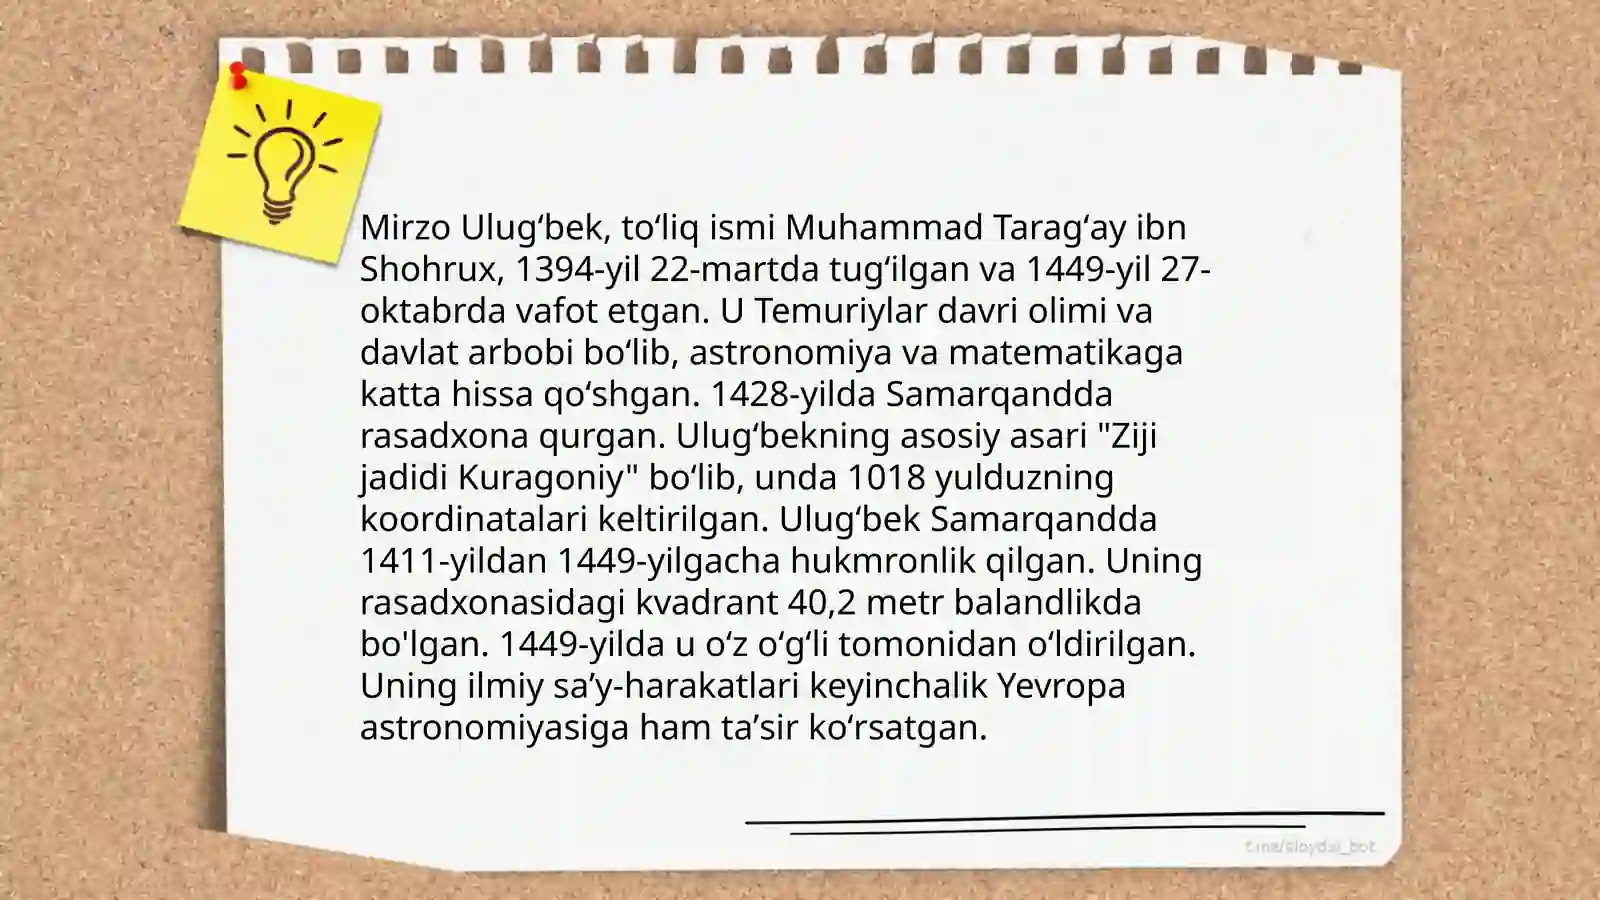 Mirzo Ulugʻbek, toʻliq ismi Muhammad Taragʻay ibn
Shohrux, 1394-yil 22-martda tugʻilgan va 1449-yil 27-
oktabrda vafot etgan. U Temuriylar davri olimi va
davlat arbobi boʻlib, astronomiya va matematikaga
katta hissa qoʻshgan. 1428-yilda Samarqandda
rasadxona qurgan. Ulugʻbekning asosiy asari "Ziji
jadidi Kuragoniy" boʻlib, unda 1018 yulduzning
koordinatalari keltirilgan. Ulugʻbek Samarqandda
1411-yildan 1449-yilgacha hukmronlik qilgan. Uning
rasadxonasidagi kvadrant 40,2 metr balandlikda
bo'lgan. 1449-yilda u oʻz oʻgʻli tomonidan oʻldirilgan.
Uning ilmiy saʼy-harakatlari keyinchalik Yevropa
astronomiyasiga ham taʼsir koʻrsatgan.